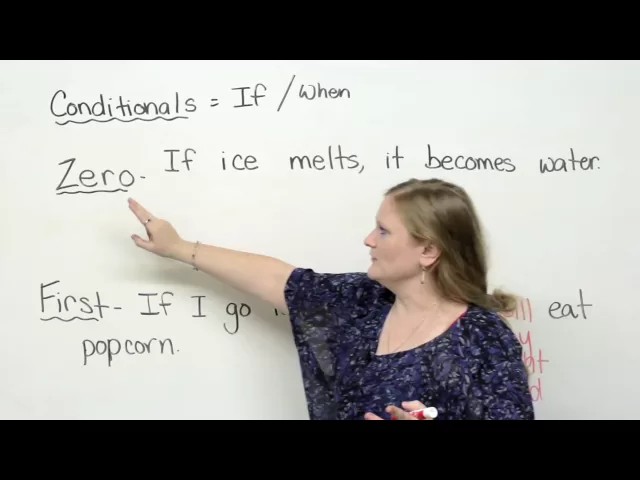 Conditionals = If / when
Zero - If ice melts, it becomes water.
First - If I go eat
popcorn.